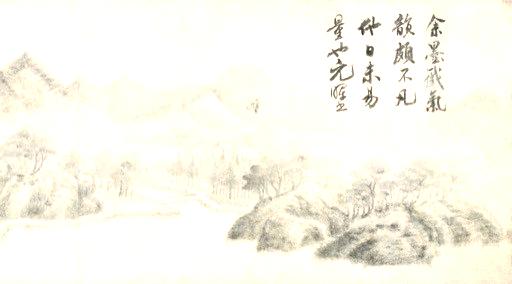 余墨戲氣
韻頗不凡
他日未易
量也元暉